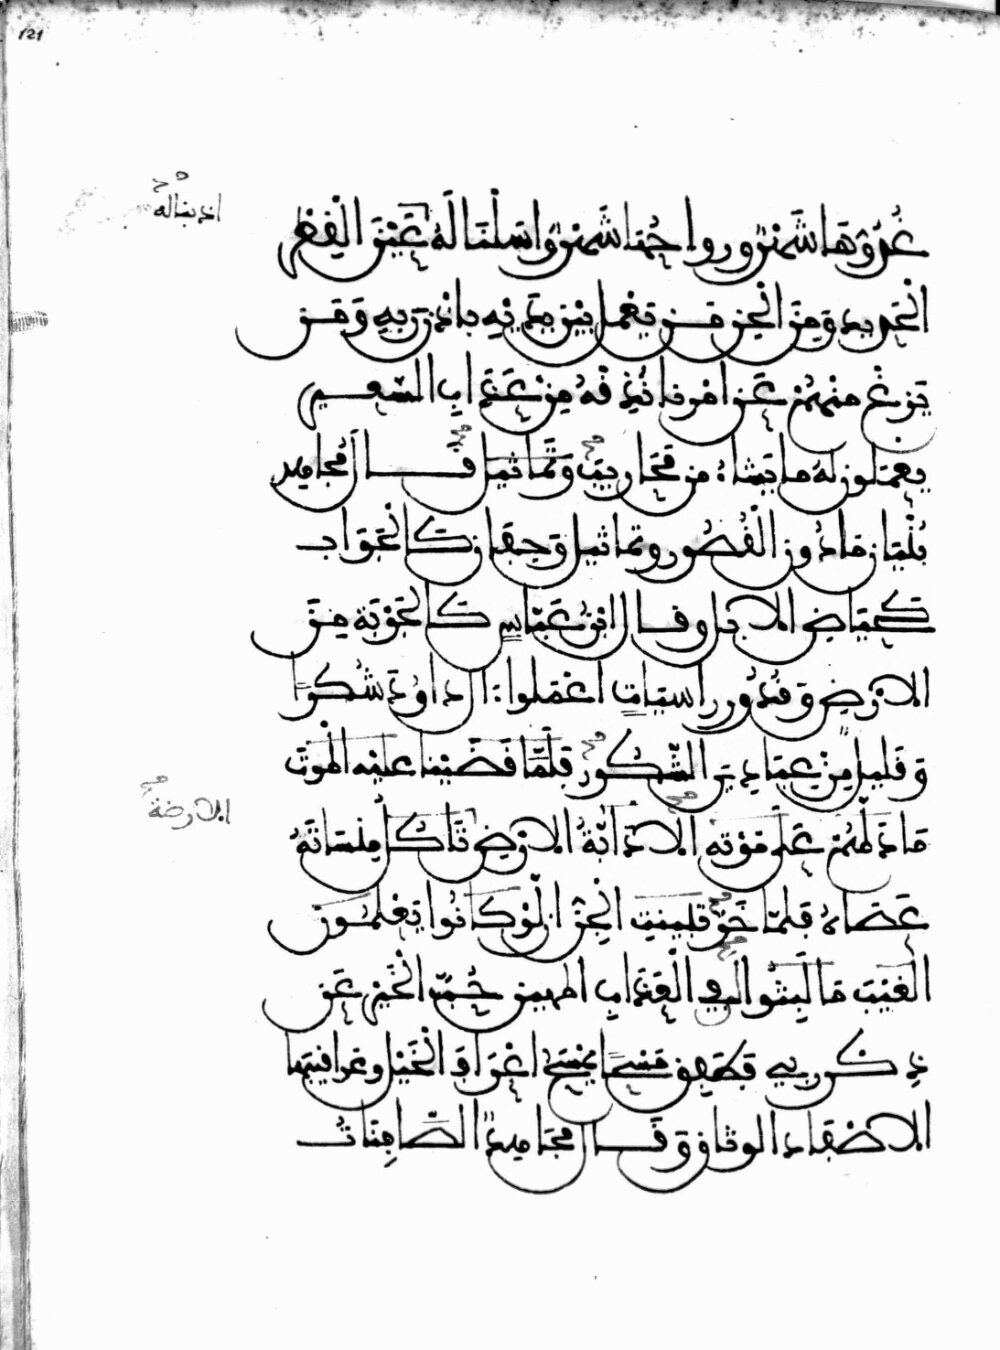 121
غُدُوُّهَا شَهْرٌ وَرَوَاحُهَا شَهْرٌ وَأَسَلْنَا لَهُ عَيْنَ الْقِطْرِ
اذبنا له
الْحَدِيدِ وَمِنَ الْجِنِّ مَن يَعْمَلُ بَيْنَ يَدَيْهِ بِإِذْنِ رَبِّهِ وَمَن
يَزِغْ مِنْهُمْ عَنْ أَمْرِنَا نُذِقْهُ مِنْ عَذَابِ السَّعِيرِ
يَعْمَلُونَ لَهُ مَا يَشَاءُ مِن مَّحَارِيبَ وَتَمَاثِيلَ قَالَ مُجَاهِد
بُنْيَانٌ مَا دُونَ الْقُصُورِ وتماثيل وَجِفَانٍ كَالْجَوَابِ
كَحِيَاضِ الابل وقال ابْنُ عَبَّاسٍ كَالْجَوْبَةِ مِنَ
الارْضِ وَقُدُورٍ رَاسِيَاتٍ اعْمَلُوا ءال دَاوُدَ شُكْرًا
وَقَلِيلٌ مِنْ عِبَادِيَ الشَّكُورُ فَلَمَّا قَضَيْنَا عَلَيْهِ الْمَوْتَ
مَا دَلَّهُمْ عَلَى مَوْتِهِ الا دَابَّةُ الارْضِ تَأْكُلُ مِنْسَاتَهُ
الارضة
عَصَاهُ فَلَمَّا خَرَّ تَبَيَّنَتِ الْجِنُّ أَن لَّوْ كَانُوا يَعْلَمُونَ
الْغَيْبَ مَا لَبِثُوا فِي الْعَذَابِ المهين حُبَّ الْخَيْرِ عَن
ذِكْرِ رَبِّي فَطَفِقَ مَسْحًا يَمْسَحُ أَعْرَافَ الْخَيْلِ وعراقيبها
الاصْفَادُ الوثاق وَقَالَ مُجَاهِدٌ الصَّافِنَاتُ